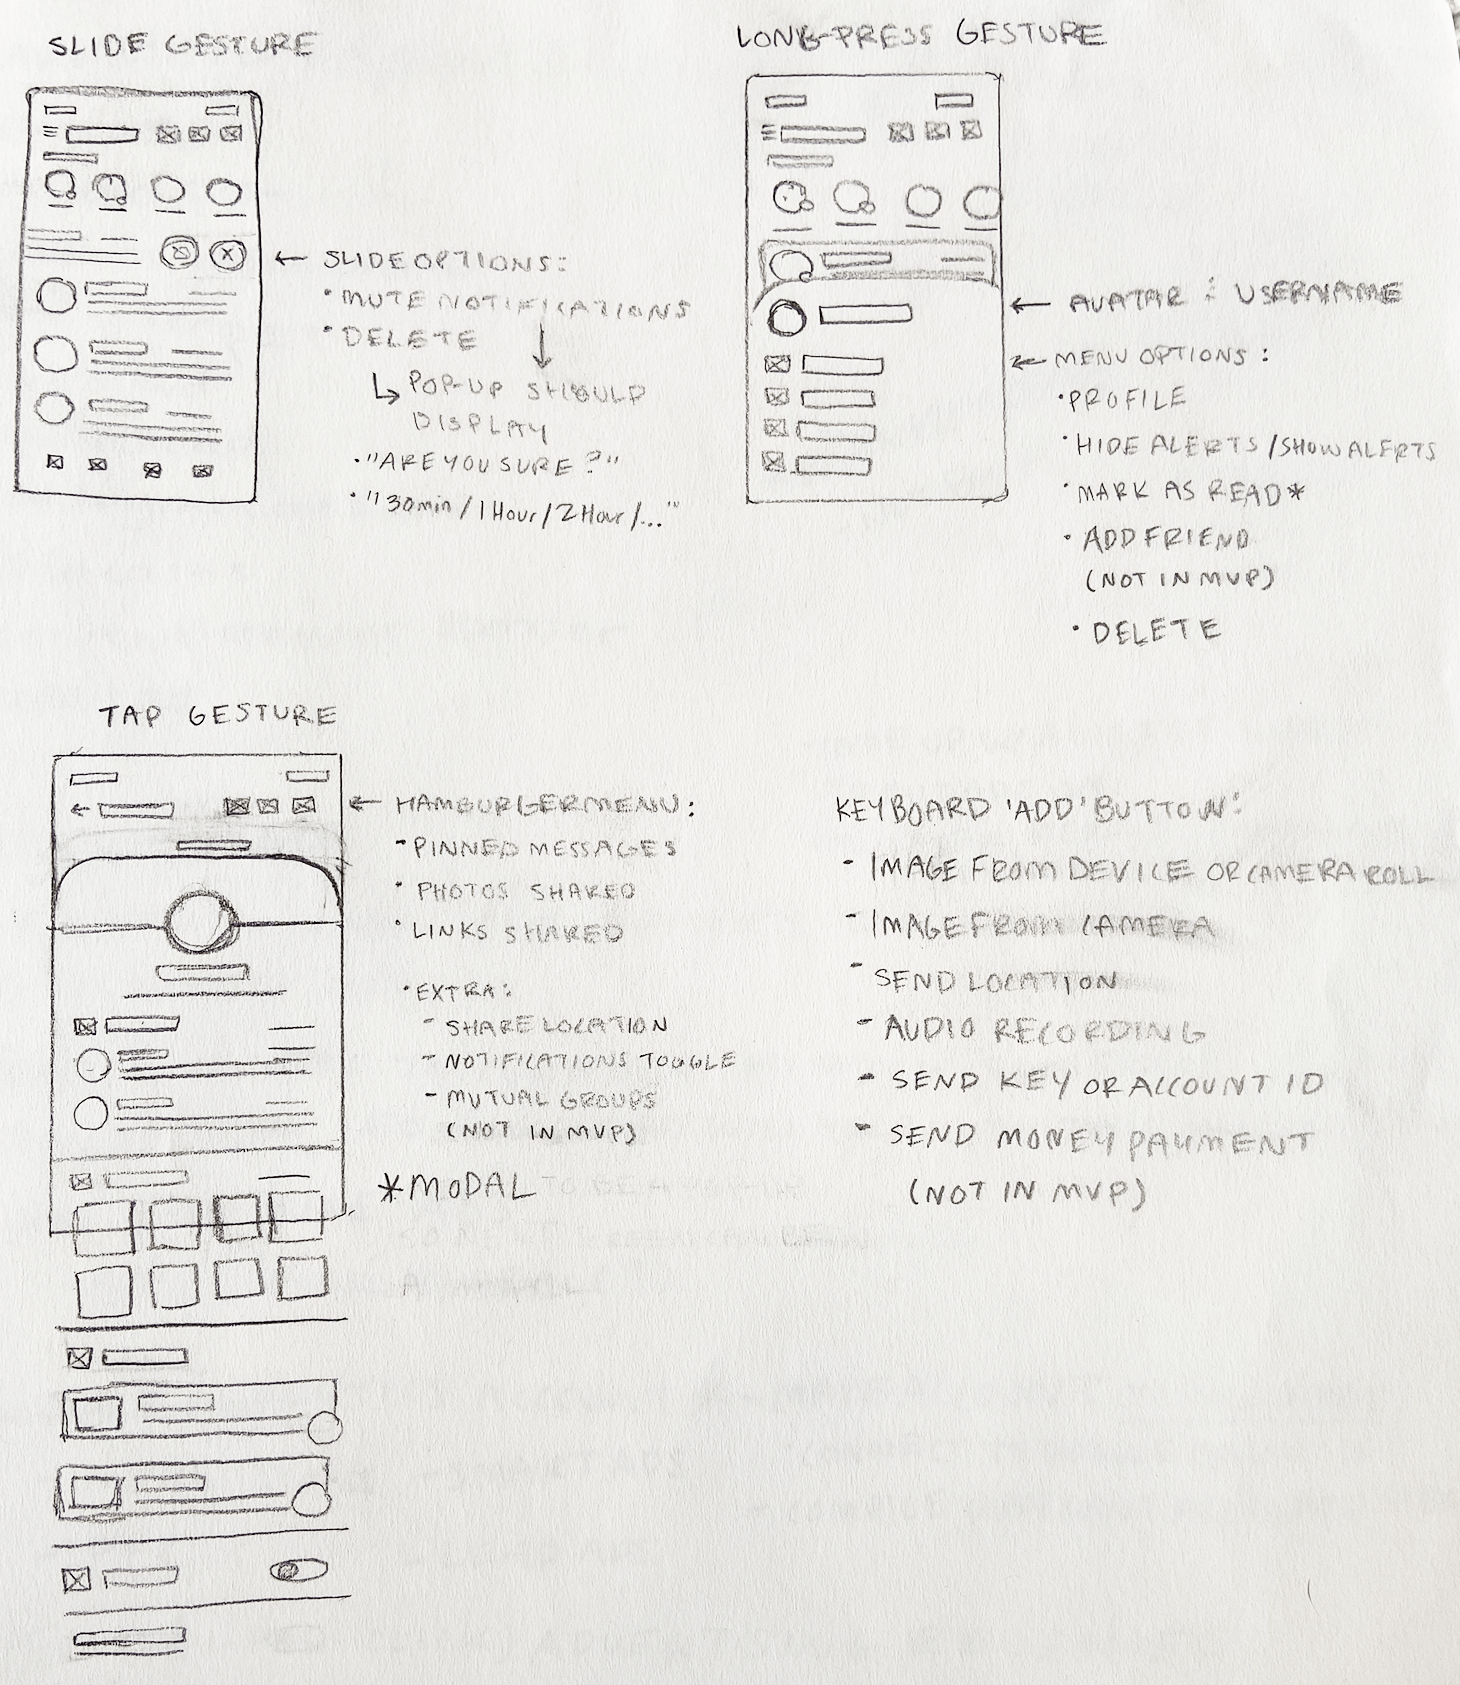 SLIDE GESTURE
SLIDE OPTIONS:
• MUTE NOTIFICATIONS
• DELETE
POP-UP SHOULD
DISPLAY
• "ARE YOU SURE?"
• "30min/1Hour/2Hour/..."
LONG-PRESS GESTURE
AVATAR : USERNAME
MENU OPTIONS:
• PROFILE
• HIDE ALERTS/SHOW ALERTS
• MARK AS READ*
• ADD FRIEND
(NOT IN MVP)
• DELETE
TAP GESTURE
HAMBURGER MENU:
- PINNED MESSAGES
• PHOTOS SHARED
• LINKS SHARED
• EXTRA:
- SHARE LOCATION
- NOTIFICATIONS TOGGLE
- MUTUAL GROUPS
(NOT IN MVP)
*MODAL
KEYBOARD 'ADD' BUTTON:
- IMAGE FROM DEVICE OR CAMERA ROLL
- IMAGE FROM CAMERA
- SEND LOCATION
- AUDIO RECORDING
- SEND KEY OR ACCOUNT ID
- SEND MONEY PAYMENT
(NOT IN MVP)